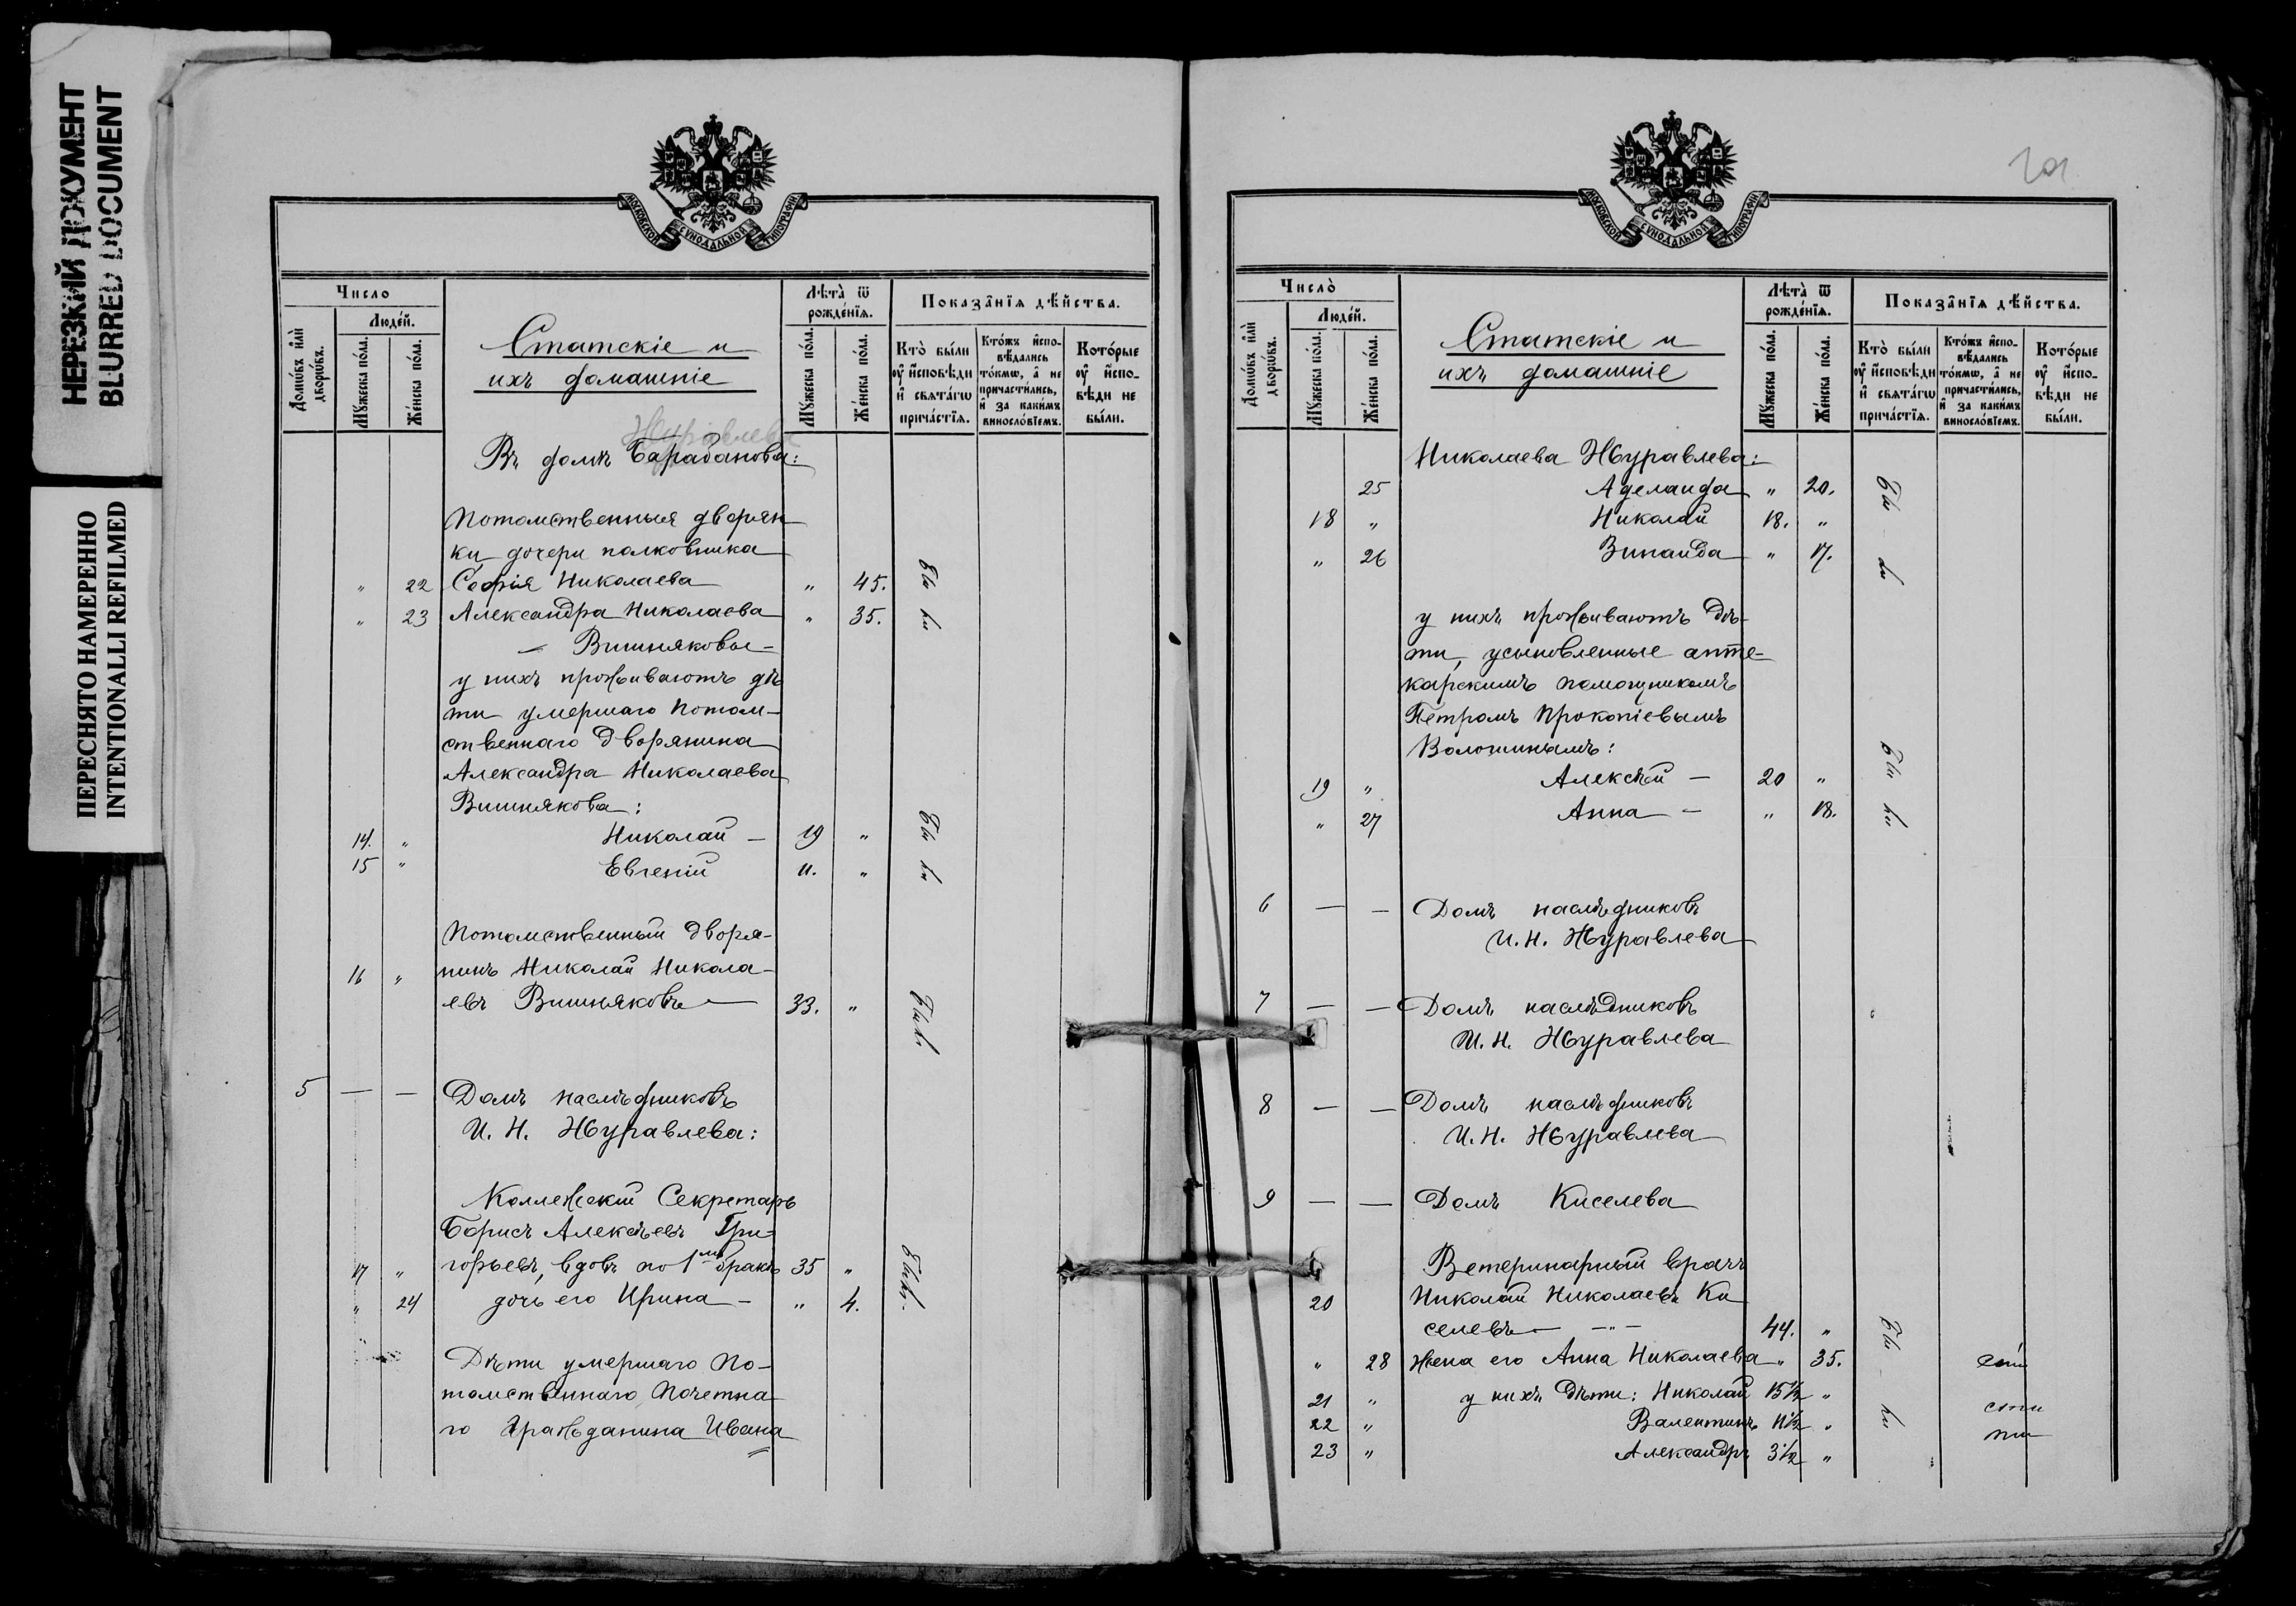 НЕРЕЗКИЙ ДОКУМЕНТ
BLURRED DOCUMENT
ПЕРЕСНЯТО НАМЕРЕННО
INTENTIONALLI REFILMED
МОСКОВСКОЙ СУНОДАЛЬНОЙ ТИПОГРАФІИ
Число
Людей.
Домѡвъ илѝ дворѡвъ.
Мꙋжеска пола.
Женска пола.
Статскіе и
ихъ домашніе
Лѣта ѿ рожденія.
Мꙋжеска пола.
Женска пола.
Показанія дѣйства.
Кто были ᲂу исповѣди и свѧтагѡ причастїѧ.
Ктожъ исповѣдались токмѡ, а не причастились, и за какимъ винословїемъ.
Которые ᲂу исповѣди не были.
Журавлева
Въ домѣ Барабанова:
Потомственныя дворян
ки, дочери полковника
„ 22 Софія Николаева „ 45. Бы
„ 23 Александра Николаева „ 35. ли
— Вишняковы —
у нихъ проживаютъ дѣ
ти умершаго потом-
ственнаго дворянина
Александра Николаева
Вишнякова:
14. „ Николай — 19 „ Бы
15 „ Евгеній 11. „ ли
Потомственный дворя-
16 „ нинъ Николай Никола-
евъ Вишняковъ — 33. „ Былъ.
5 — — Домъ наслѣдниковъ
И. Н. Журавлева:
Коллежскій Секретарь
Борисъ Алексѣевъ Гри-
17 „ горьевъ, вдовъ по 1мъ бракѣ 35 „ Были.
„ 24 дочь его Ирина — „ 4.
Дѣти умершаго По-
томственнаго Почетна
го Гражданина Ивана
МОСКОВСКОЙ СУНОДАЛЬНОЙ ТИПОГРАФІИ
Число
Людей.
Домѡвъ илѝ дворѡвъ.
Мꙋжеска пола.
Женска пола.
Статскіе и
ихъ домашніе
Лѣта ѿ рожденія.
Мꙋжеска пола.
Женска пола.
Показанія дѣйства.
Кто были ᲂу исповѣди и свѧтагѡ причастїѧ.
Ктожъ исповѣдались токмѡ, а не причастились, и за какимъ винословїемъ.
Которые ᲂу исповѣди не были.
Николаева Журавлева:
25 Аделаида „ 20. Бы
18 „ Николай 18. „ —
„ 26 Зинаида „ 17. ли
у нихъ проживаютъ дѣ-
ти, усыновленные апте-
карскимъ помощникомъ
Петромъ Прокопіевымъ
Волошинымъ:
19 „ Алексѣй — 20 „ Бы
„ 27 Анна — „ 18. ли
6 — — Домъ наслѣдниковъ
И. Н. Журавлева
7 — — Домъ наслѣдниковъ
И. Н. Журавлева
8 — — Домъ наслѣдниковъ
И. Н. Журавлева
9 — — Домъ Киселева
Ветеринарный врачъ
20 Николай Николаевъ Ки
селевъ — „ — 44. „ Бы
„ 28 жена его Анна Николаева „ 35. —
21 „ у нихъ дѣти: Николай 15½ „
22 „ Валентинъ 11½ „ ли
23 „ Александръ 3½ „